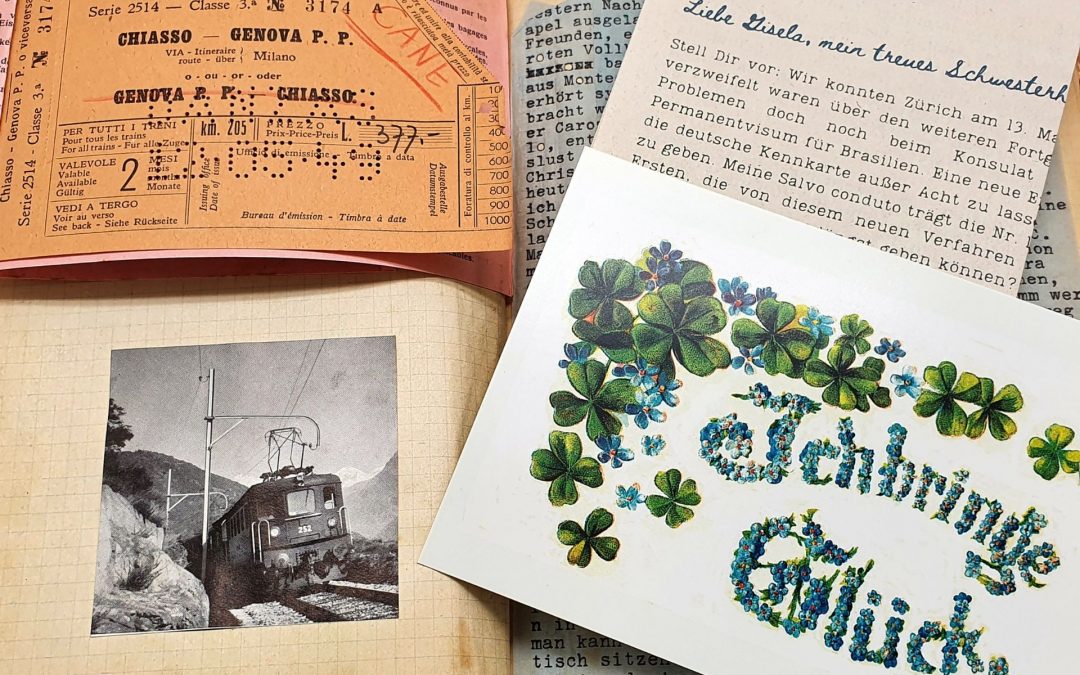 Serie 2514 — Classe 3.ª № 3174 A
CHIASSO — GENOVA P. P.
VIA - Itineraire
route - über
Milano
o - ou - or - oder
GENOVA P. P. — CHIASSO
PER TUTTI I TRENI
Pour tous les trains
For all trains - Fur alle Zuge
km. 205
PREZZO
Prix-Price-Preis
L. 377.-
VALEVOLE
Valable
Available
Gültig
2
MESI
mois
months
Monate
Issuing Office
Date of issue
Ufficio di emissione
Timbro a data
Ausgabestelle
Datumstempel
Foratura di controllo al km.
500
600
700
800
900
1000
VEDI A TERGO
Voir au verso
See back - Siehe Rückseite
Bureau d'émission - Timbro à date
CANE
Chiasso - Genova P. p. o viceversa
Serie 2514 - Classe 3.ª № 3174
252
Liebe Gisela, mein treues Schwesterh
Stell Dir vor: Wir konnten Zürich am 13. Ma
verzweifelt waren über den weiteren Fortg
Problemen doch noch beim Konsulat
Permanentvisum für Brasilien. Eine neue E
die deutsche Kennkarte außer Acht zu lass
zu geben. Meine Salvo conduto trägt die Nr.
Ersten, die von diesem neuen Verfahren
geben können?
estern Nach
apel ausgela
Freunden, e
roten Voll
aus Monte
erhört s
bracht w
er Caro
slust
Christ
heut
ich
n in
man kann
tisch sitzen
Ich bringe
Glück.